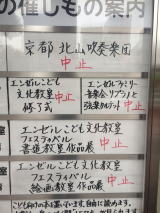 の催しもの案内
京都 北山吹奏楽団
中止
エンゼルこども
文化教室
修了式
中止
エンゼルファミリー
音楽会
弦楽カルテット
中止
室
エンゼルこども文化教室
フェスティバル
書道教室作品展
中止
室
エンゼルこども文化教室
フェスティバル
絵画教室作品展
中止